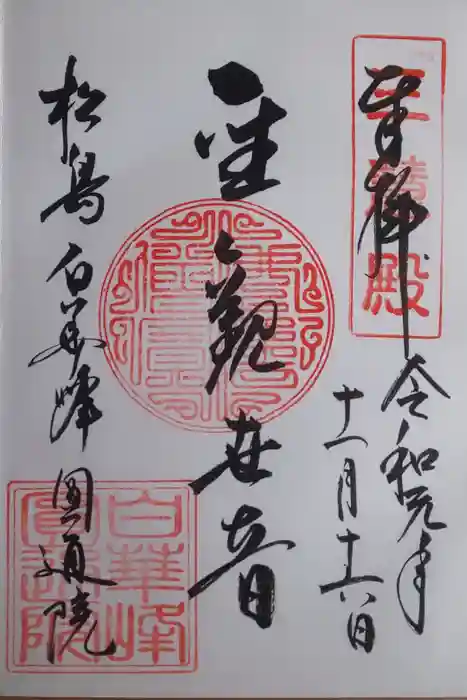 奉拝
令和元年
十一月十六日
聖観世音
松島白華峰圓通院
三慧殿
白華峰
圓通院